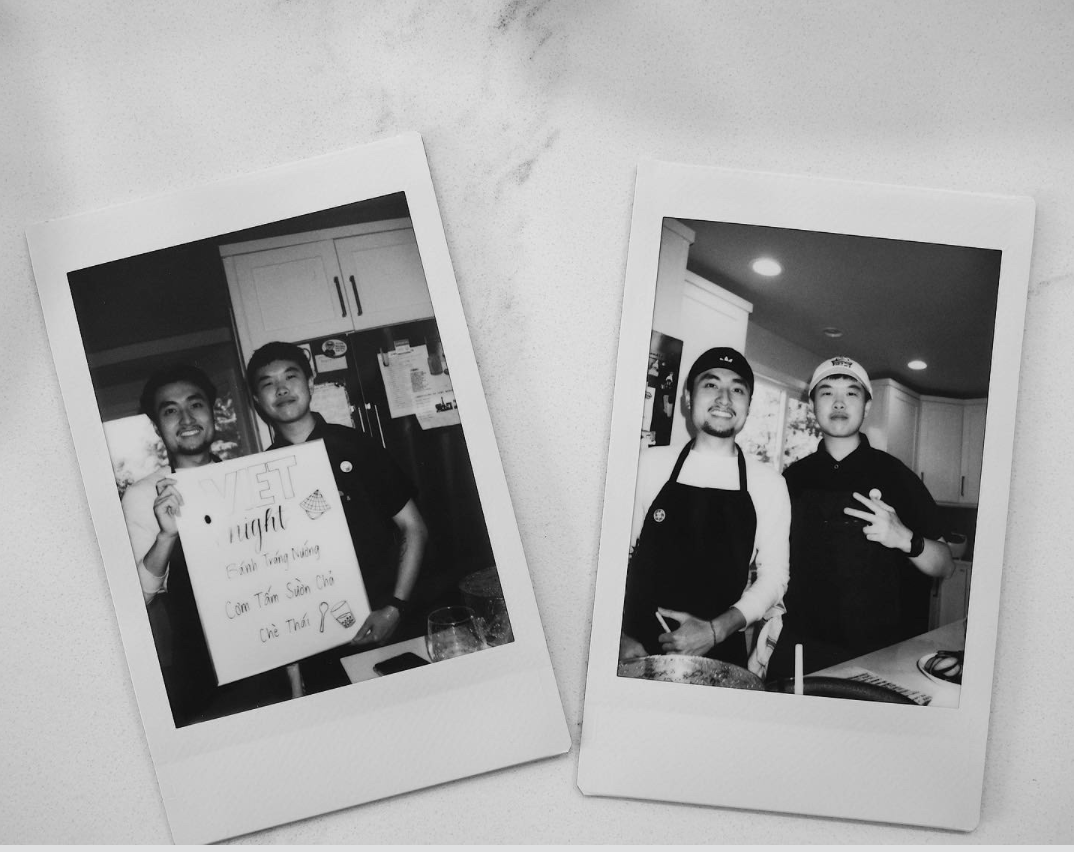 VIET
night
Bánh Tráng Nướng
Cơm Tấm Sườn Chả
Chè Thái